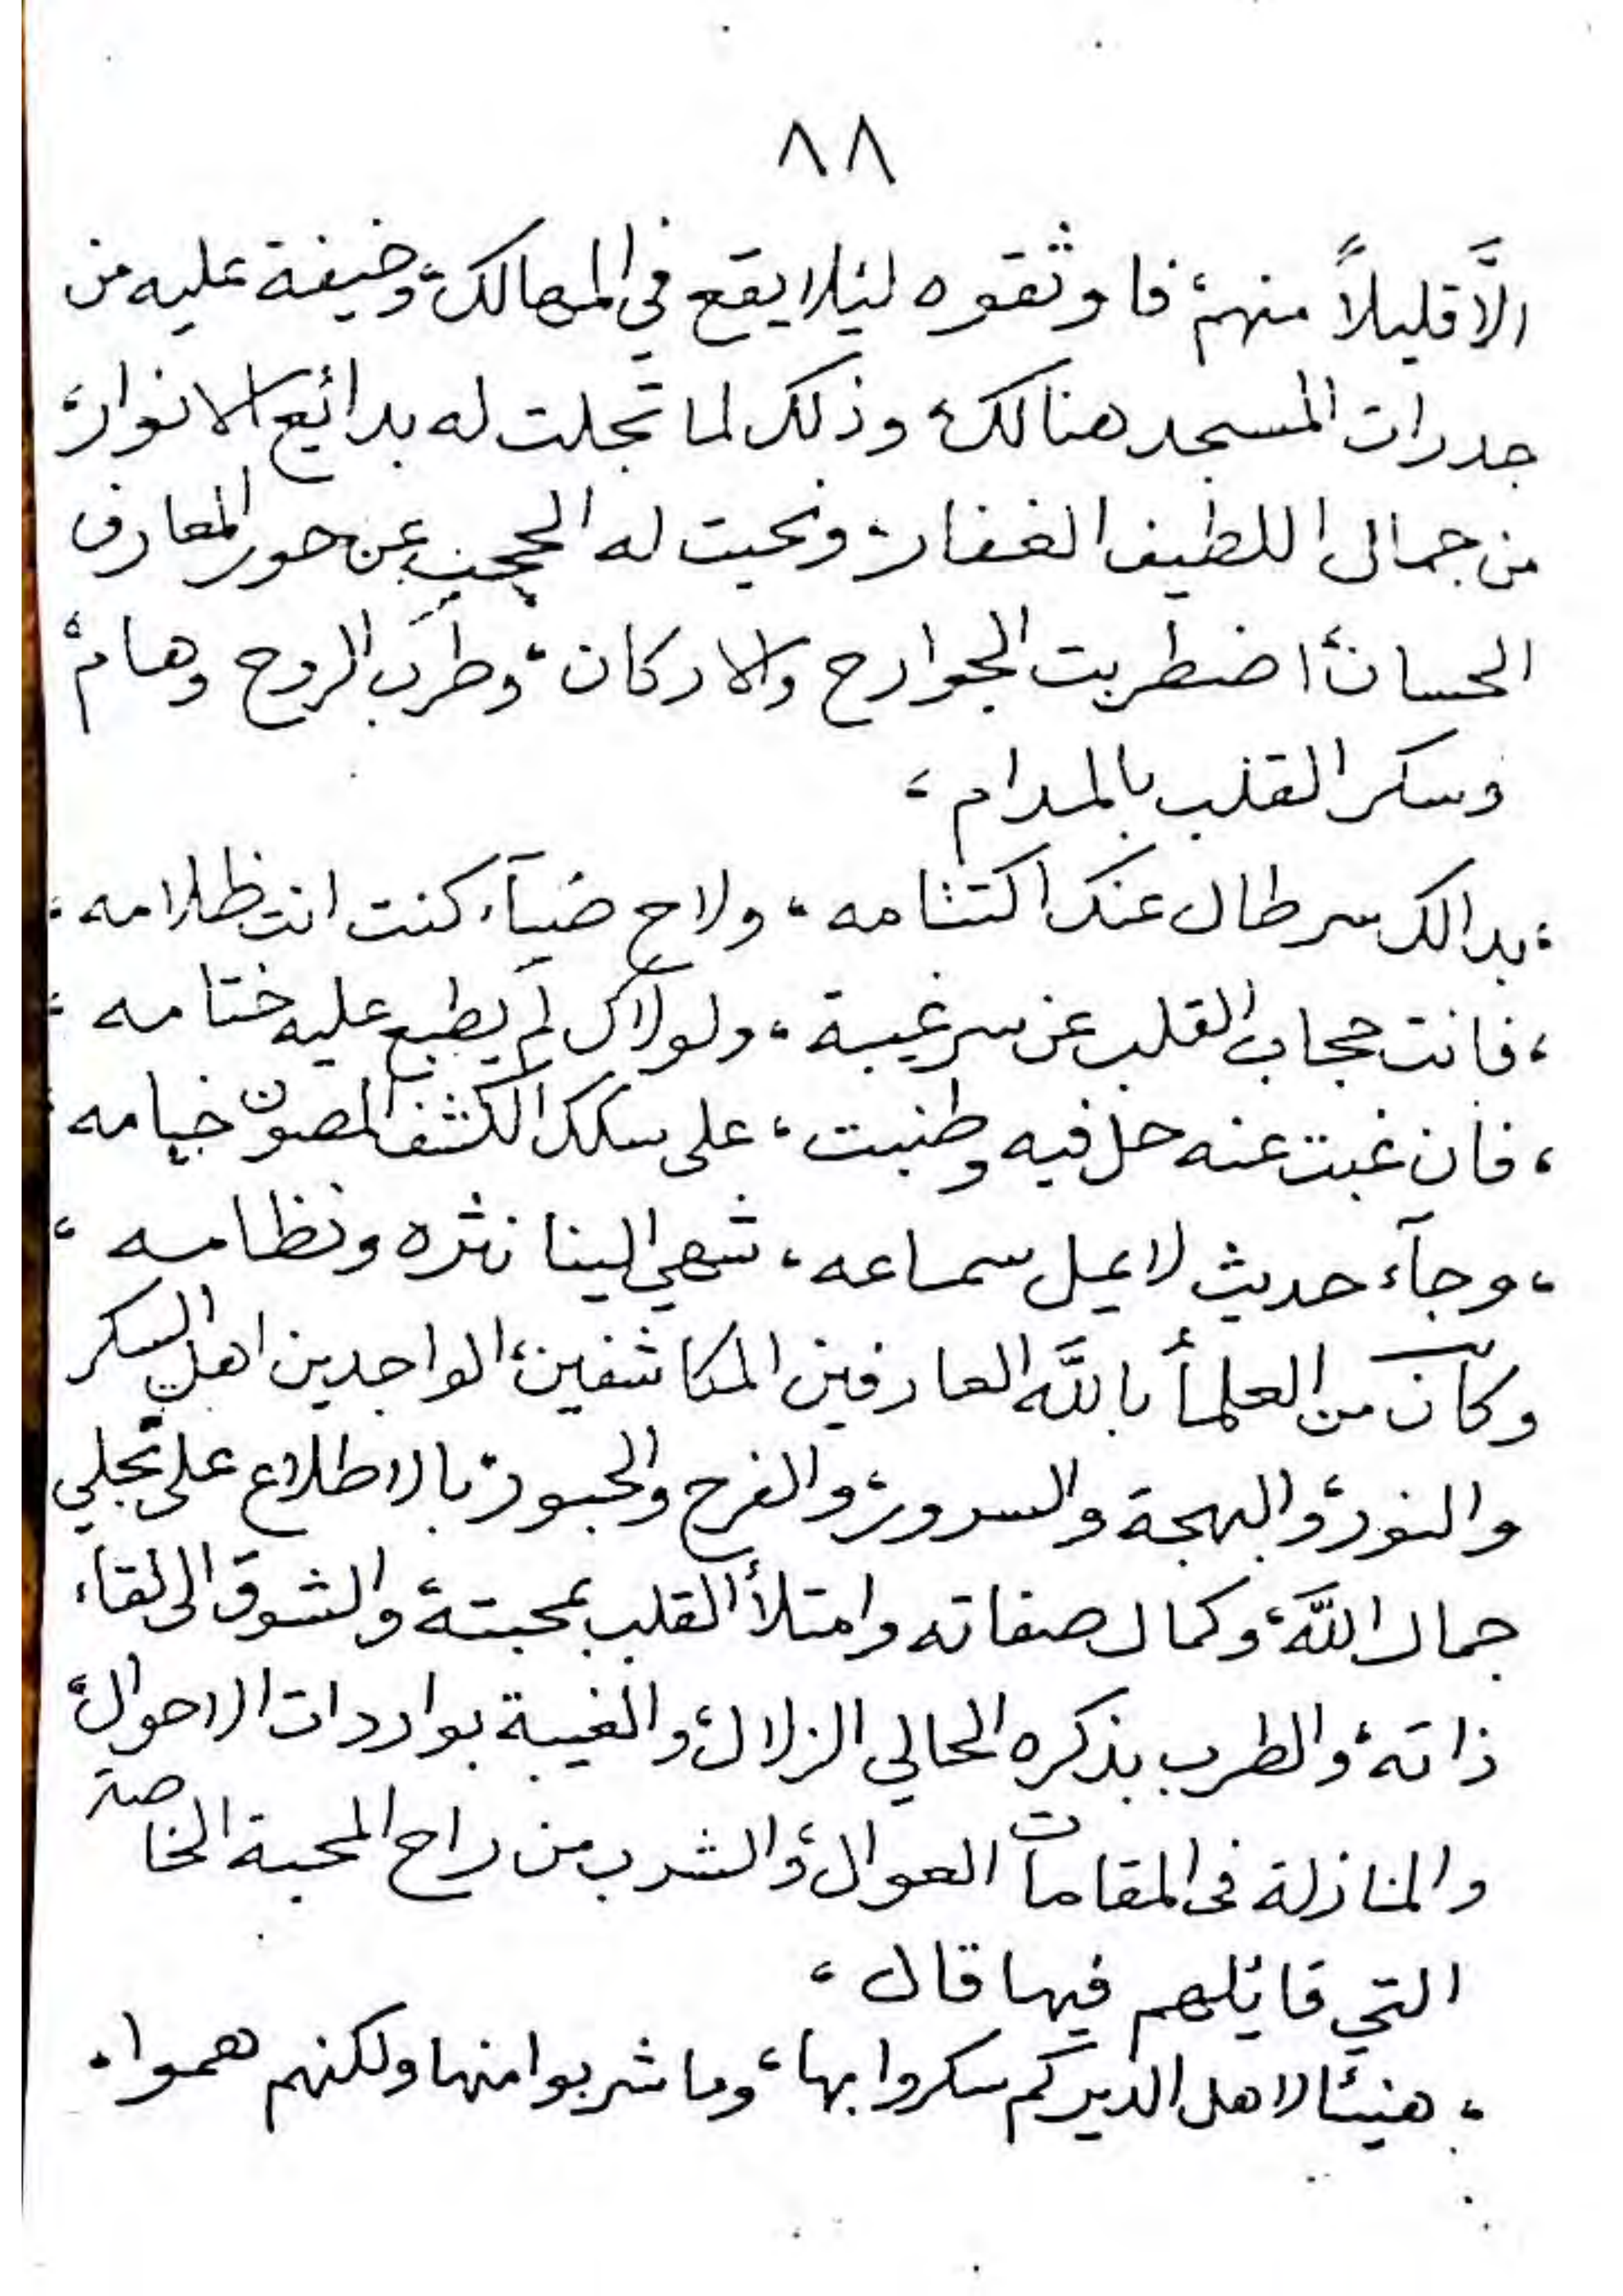 ٨٨
الَّا قليلاً منهم، فاوثقوه ليئلا يقع في المهالك، وخيفة عليه من
جدرات المسجد هنالك، وذلك لما تجلت له بدائع الانوار،
من جمال اللطيف الغفار، ونحيت له الحجب عن حور المعارف
الحسان، اضطربت الجوارح والاركان، وطرب الروح وهام،
وسكر القلب بالمدام،
، بدالك سر طال عنك اكتثامه، ولاح ضيآء كنت انت ظلامه،
، فانت حجاب القلب عن سر غيبة، ولولاك لم يطبع عليه ختامه،
، فان غبت عنه حل فيه وطنبت، على سلك الكشف المصون خيامه
، وجآء حديث لا يمل سماعه، شهي الينا نثره ونظامه،
وكان من العلمأ باللَّه العارفين المكاشفين، الواجدين اهل السكر
والنور، والبهجة والسرور، والفرح والحبور، بالاطلاع على تجلي
جمال اللَّه، وكمال صفاته وامتلأ القلب بمحبتة، والشوق الى لقاء
ذاته، والطرب بذكره الحالي الزلال، والغيبة بواردات الاحوال،
والمنازلة فى المقامات العوال، والشرب من راح المحبة الخاصة
التي قائلهم فيها قال،
، هنيئا لاهل الدير كم سكروا بها، وما شربوا منها ولكنهم هموا،